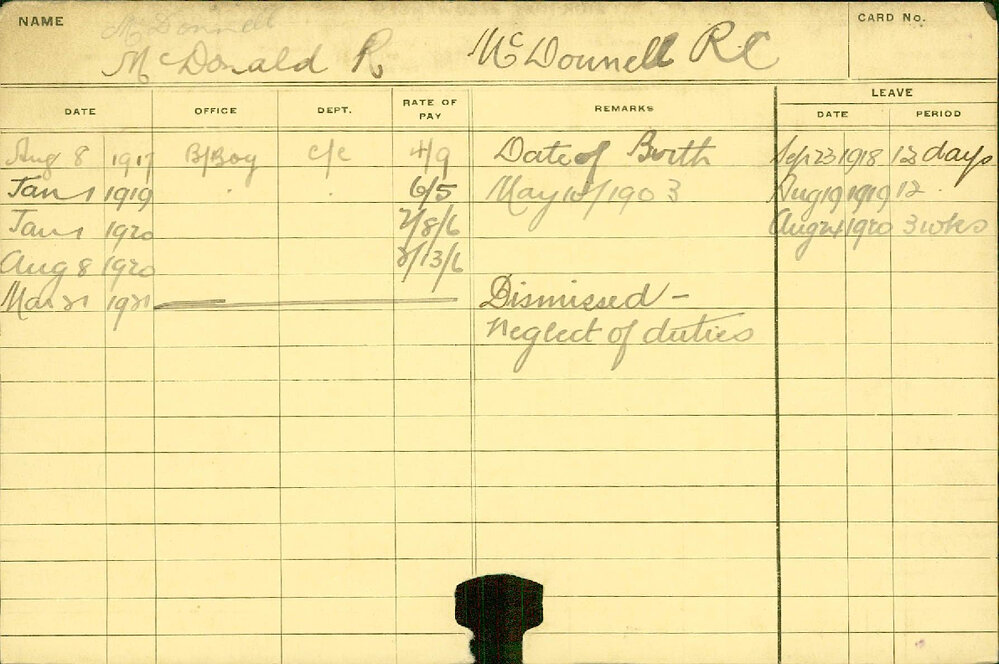 NAME McDonnell CARD No.
McDonald R McDonnell RC
LEAVE
DATE OFFICE DEPT. RATE OF PAY REMARKS DATE PERIOD
Aug 8 1917 B/Boy c/c 4/9 Date of Birth Sep 23 1918 12 days
Jan 1 1919 " " 6/5 May 10/1903 Aug 19 1919 12 "
Jan 1 1920 7/8/6 Aug 24 1920 3 wks
Aug 8 1920 8/13/6
Mar 21 1921 Dismissed -
Neglect of duties